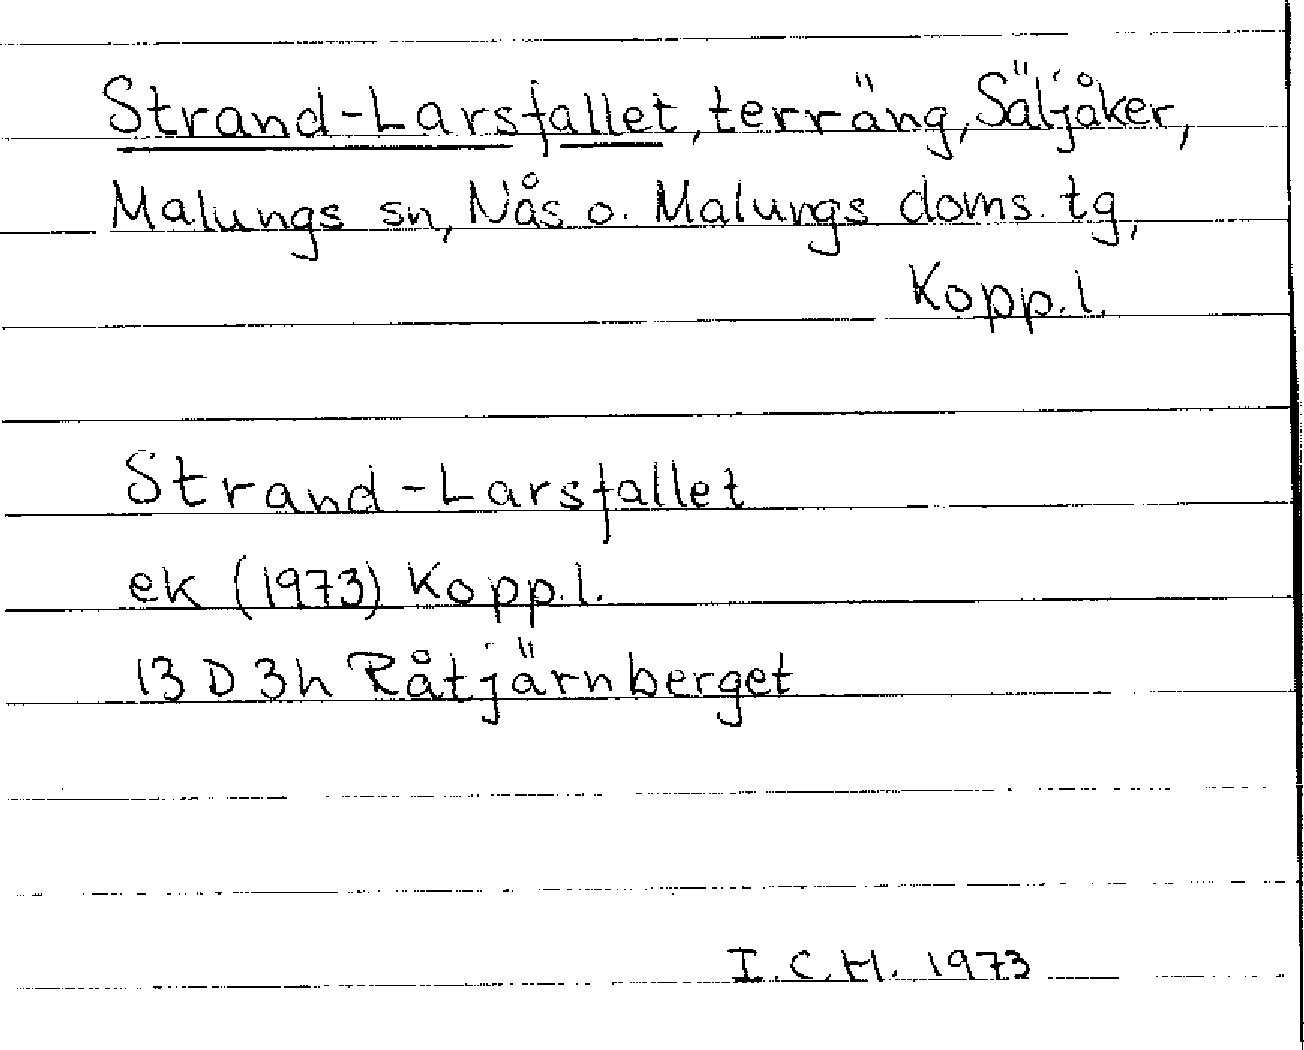 Strand-Larsfallet, terräng, Säljåker,
Malungs sn, Nås o. Malungs doms. tg,
Kopp.l.
Strand-Larsfallet
ek (1973) Kopp.l.
13 D 3h Råtjärnberget
I.C.H. 1973